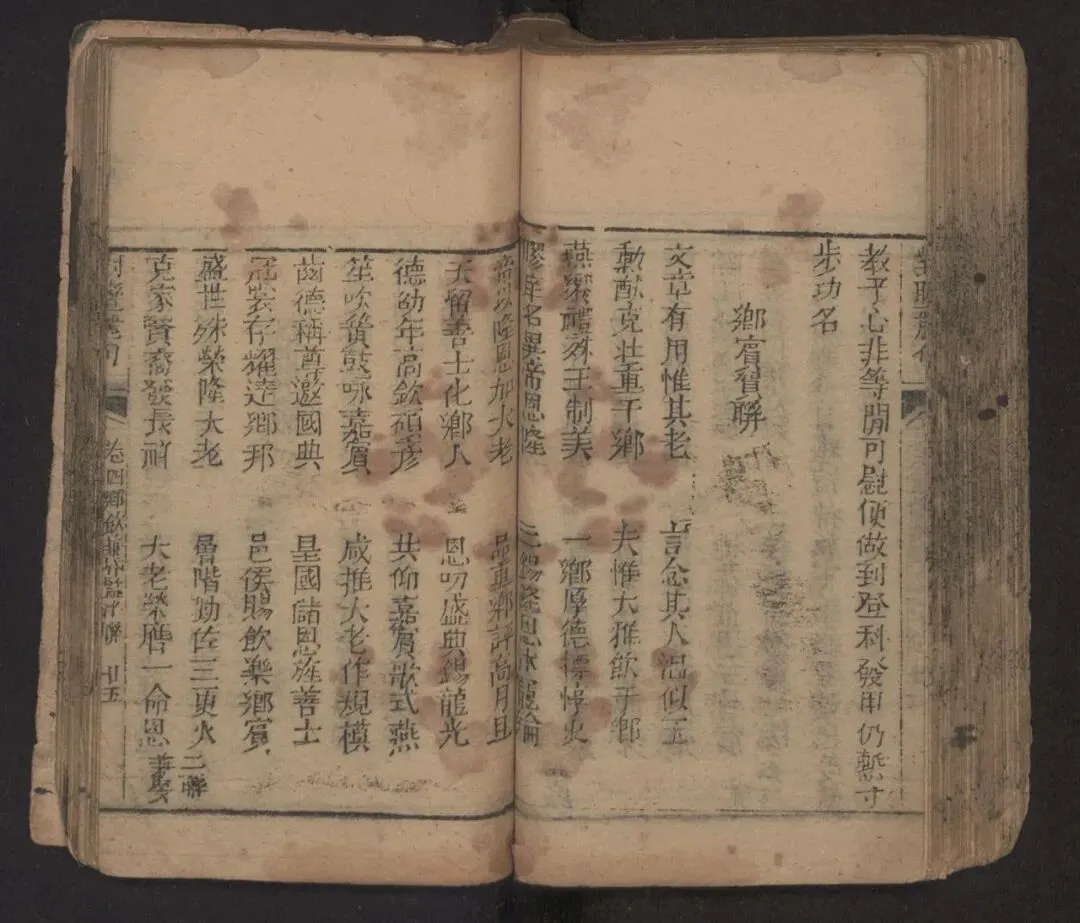 教子心非等閒可慰便做到登科發甲仍慙寸
步功名
鄉賓賀聯
文章有用惟其老 言念其人温似玉
勳猷克壯重于鄉 夫惟大雅飲于鄉
燕樂禮殊王制美 一鄉厚德
名選帝恩隆
隆恩加大老 鄉評高月旦
天留善士化鄉人 恩叨盛典錫龍光
德劭年高欽碩彥 共仰嘉賓歌式燕
笙吹簧鼓咏嘉賓 咸推大老作規模
齒德稱尊邀國典 皇國儲恩旌善士
冠裳存耀達鄉邦 邑侯賜飲樂鄉賓
盛世殊榮隆大老 曾階勤佐三更火 二聯
克家賢裔發長祥 大老榮膺一命恩 兼婪
卷四鄉飲 聯 廿五